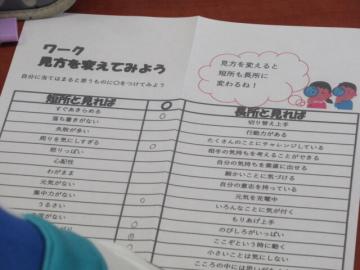 ワーク
見方を変えてみよう
自分に当てはまると思うものに○をつけてみよう
見方を変えると
短所も長所に
変わるね！
短所と見れば ○ 長所と見れば
すぐあきらめる 切り替え上手
落ち着きがない ○ 行動力がある
失敗が多い たくさんのことにチャレンジしている
周りを気にしすぎる ○ 相手の気持ちを考えることができる
怒りっぽい 自分の気持ちを素直に出せる
心配性 細かいことに気づける
わがまま 自分の意志を持っている
元気がない 元気を充電中
集中力がない いろんなことに気が付く
うるさい もりあげ上手
がない ○ のびしろがいっぱい
ない ○ ここぞという時に動く
○ 小さいことは気にしない